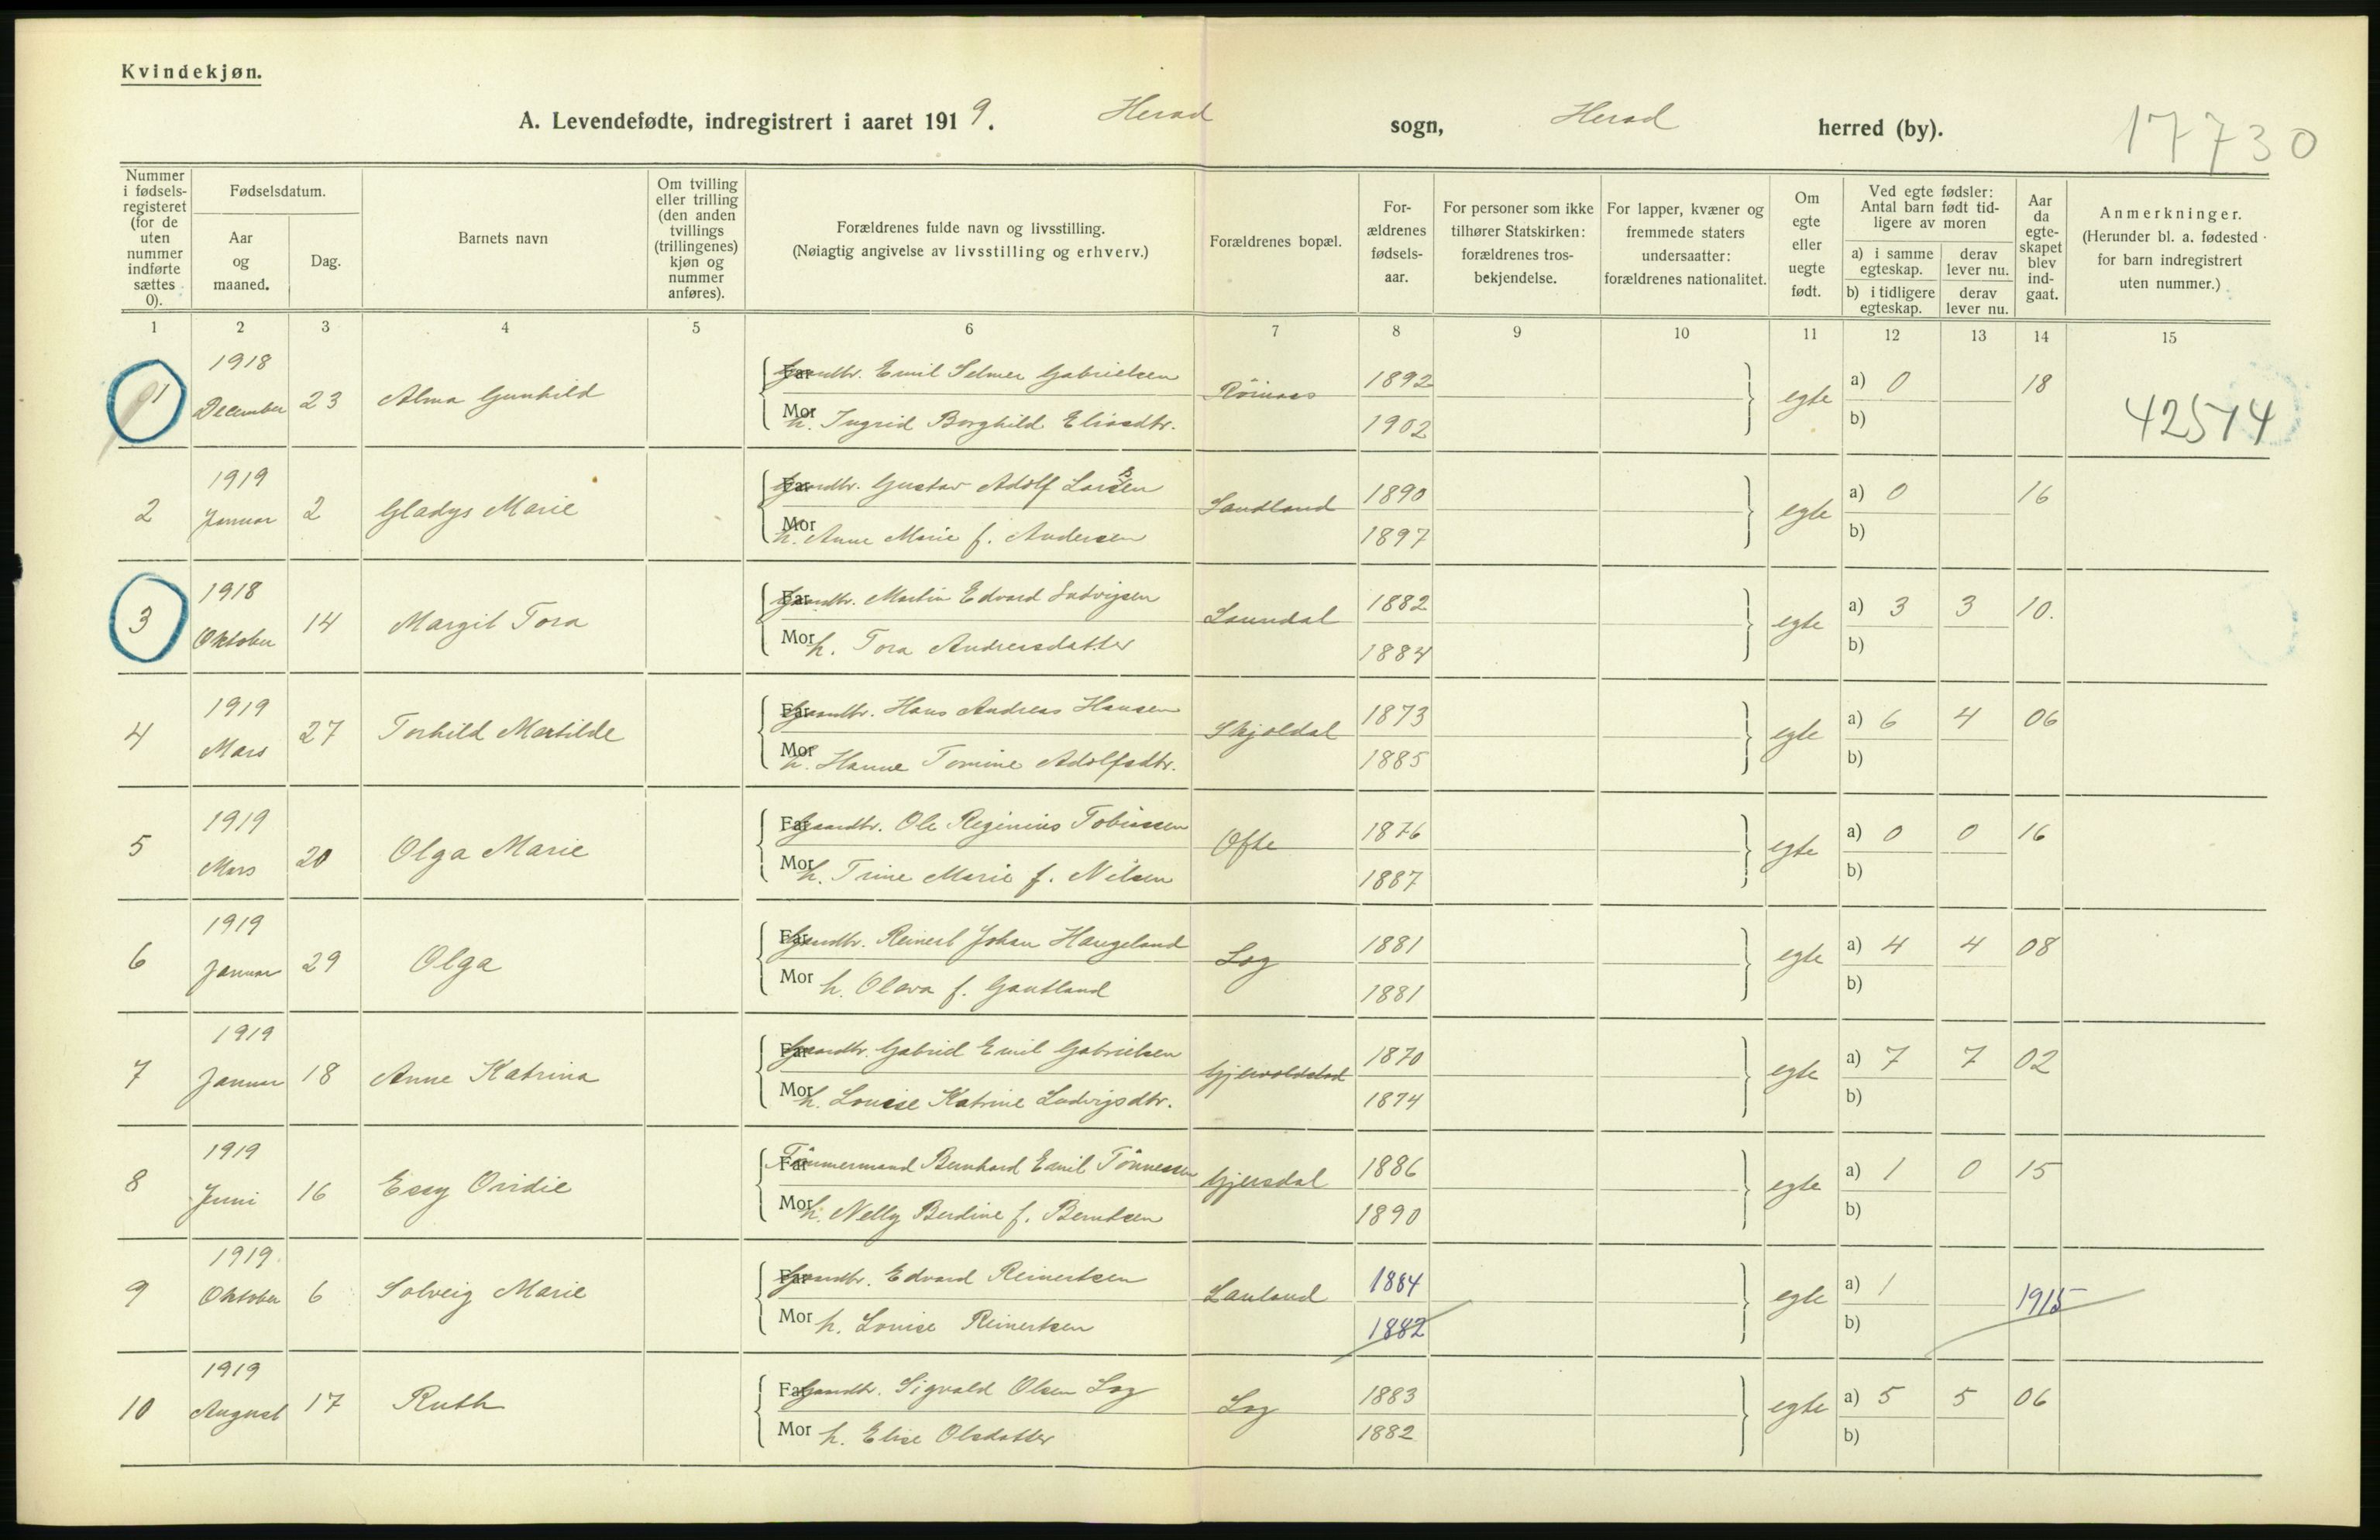 Kvindekjøn.
A. Levendefødte, indregistrert i aaret 1919. Herad sogn, Herad herred (by). 17730
Nummer i fødselsregisteret (for de uten nummer indførte sættes 0).
Fødselsdatum.
Aar og maaned.
Dag.
Barnets navn
Om tvilling eller trilling (den anden tvillings (trillingenes) kjøn og nummer anføres).
Forældrenes fulde navn og livsstilling.
(Nøiagtig angivelse av livsstilling og erhverv.)
Forældrenes bopæl.
Forældrenes fødselsaar.
For personer som ikke tilhører Statskirken: forældrenes trosbekjendelse.
For lapper, kvæner og fremmede staters undersaatter: forældrenes nationalitet.
Om egte eller uegte født.
Ved egte fødsler: Antal barn født tidligere av moren
a) i samme egteskap. derav lever nu.
b) i tidligere egteskap. derav lever nu.
Aar da egteskapet blev indgaat.
Anmerkninger.
(Herunder bl. a. fødested for barn indregistrert uten nummer.)
1 2 3 4 5 6 7 8 9 10 11 12 13 14 15
1 1918 December 23 Alma Gunhild
Far Gaardbr. Emil Selmer Gabrielsen 1892
Mor h. Ingrid Borghild Eliasdtr. 1902
egte a) 0 18
b)
42574
2 1919 Januar 2 Gladys Marie
Far Gaardbr. Gustav Adolf Larsen Sandland 1890
Mor h. Anne Marie f. Andersen 1897
egte a) 0 16
b)
3 1918 Oktober 14 Margit Tora
Far Gaardbr. Martin Edvard Ludvigsen Laundal 1882
Mor h. Tora Andreasdatter 1884
egte a) 3 3 10.
b)
4 1919 Mars 27 Torhild Martilde
Far Gaardbr. Hans Andreas Hansen Skjoldal 1873
Mor h. Hanne Tomine Adolfsdtr. 1885
egte a) 6 4 06
b)
5 1919 Mars 20 Olga Marie
Far Gaardbr. Ole Reginius Tobiassen Ofte 1876
Mor h. Trine Marie f. Nilsen 1887
egte a) 0 0 16
b)
6 1919 Januar 29 Olga
Far Gaardbr. Reinert Johan Haugeland Log 1881
Mor h. Olava f. Gautland 1881
egte a) 4 4 08
b)
7 1919 Januar 18 Anne Katrina
Far Gaardbr. Gabriel Emil Gabrielsen Gjervoldstad 1870
Mor h. Louise Katrine Ludvigsdtr. 1874
egte a) 7 7 02
b)
8 1919 Juni 16 Essy Ovidie
Far Tömmermand Bernhard Emil Tönnessen Gjersdal 1886
Mor h. Nelly Berdine f. Berntsen 1890
egte a) 1 0 15
b)
9 1919 Oktober 6 Solveig Marie
Far Gaardbr. Edvard Reinertsen Lauland 1884
Mor h. Louise Reinertsen 1882
egte a) 1 1915
b)
10 1919 August 17 Ruth
Far Gaardbr. Sigvald Olsen Log Log 1883
Mor h. Elise Olsdatter 1882
egte a) 5 5 06
b)